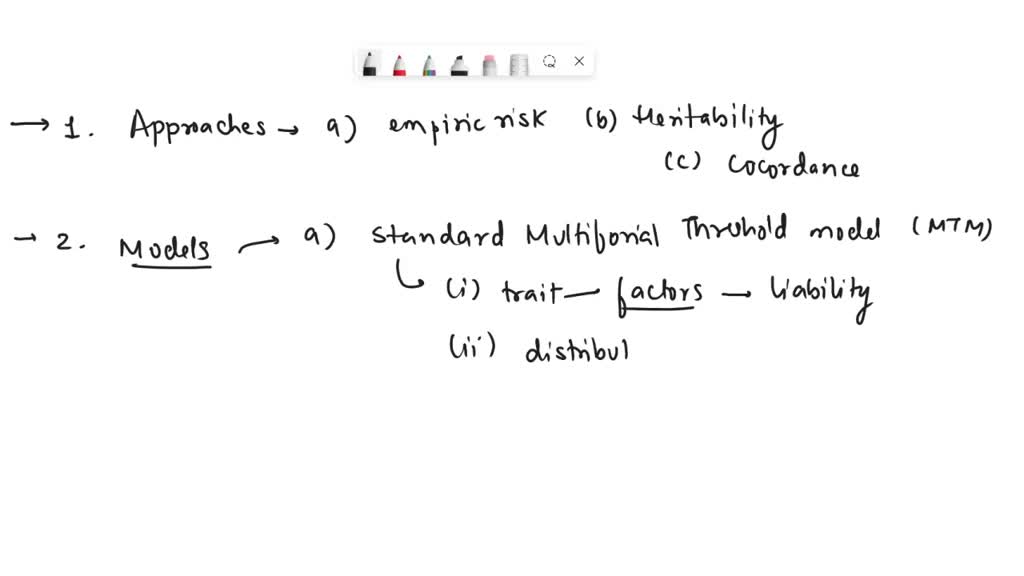 → 1. Approaches → a) empiric risk (b) Heritability
(c) Cocordance
→ 2. Models → a) Standard Multiforial Threhold model (MTM)
(i) trait — factors → liability
(ii) distribul